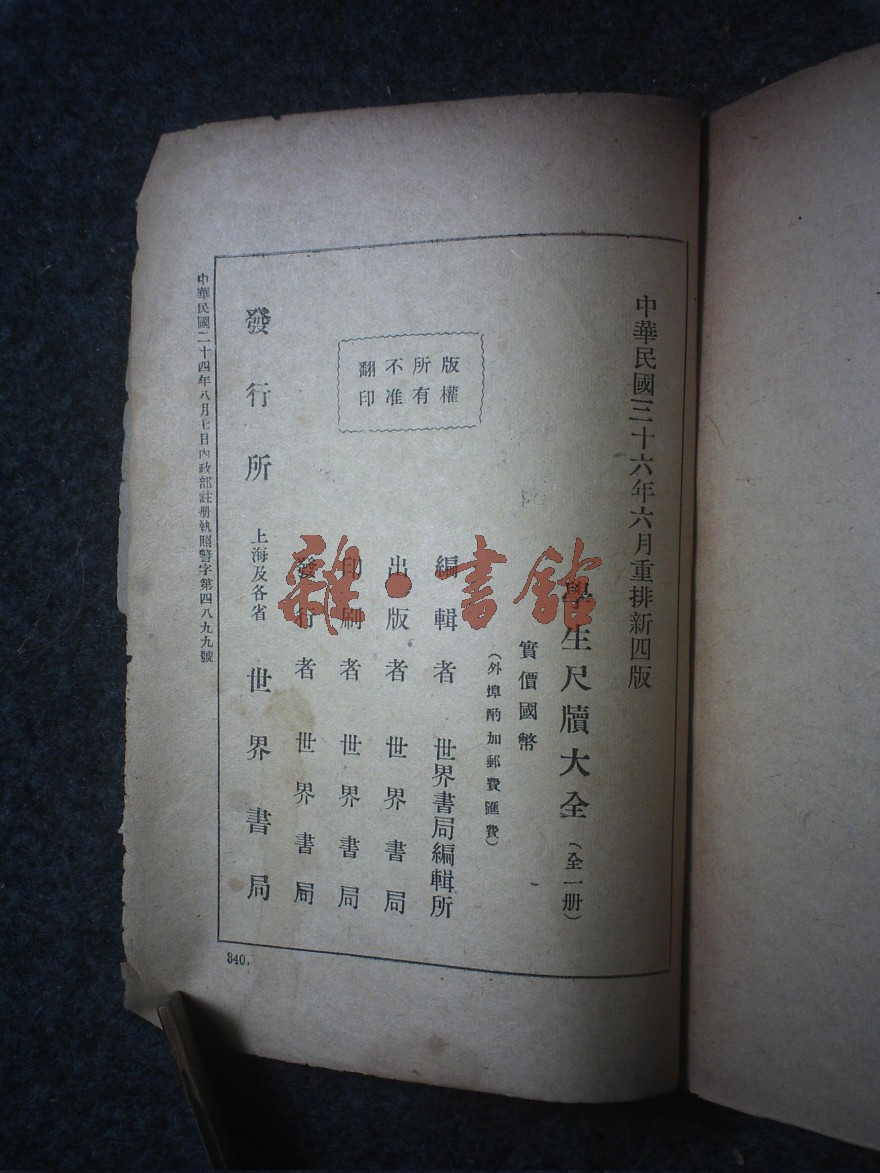 中華民國三十六年六月重排新四版
學生尺牘大全（全一册）
實價國幣
（外埠酌加郵費匯費）
版權
所有
不准
翻印
編輯者 世界書局編輯所
出版者 世界書局
印刷者 世界書局
發行者 世界書局
發行所 上海及各省 世界書局
中華民國二十四年八月七日內政部註册執照警字第四八九九號
340,
雜·書館